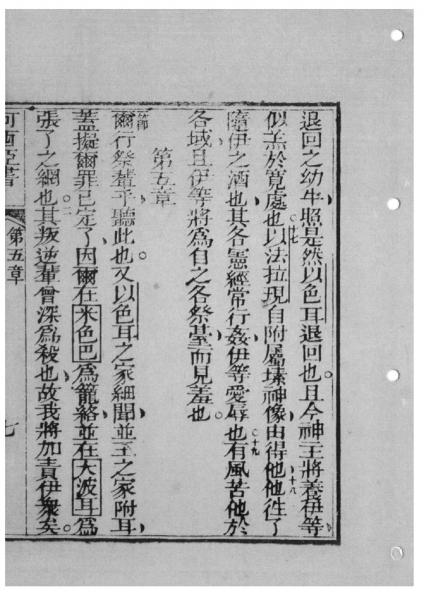 退回之幼牛照是然以色耳退回也且今神王將養伊等
似羔於寬處也十七以法拉現自附屬塑神像由得他十八他徃了
隨伊之酒也其各憲經常行姦伊等愛辱也十九有風苦他於
各域且伊等將為自之各祭臺而見羞也
第五章
一節爾行祭輩乎聽此也又以色耳之家細聞並王之家附耳
蓋擬爾罪已定了因爾在米色巴為籠絡並在大波耳為
張了之網也二其叛逆輩曾深為殺也故我將加責伊衆矣
何西亞書
第五章
七